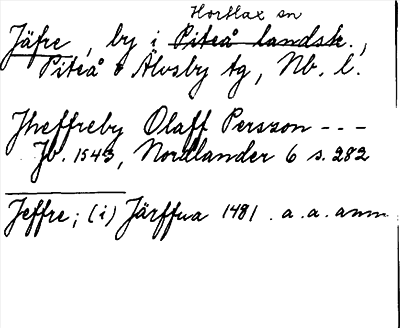 Hortlax sn
Jäfre, by i Piteå landsk.,
Piteå o Älvsby tg, Nb. l.
Jheffreby Olaff Persson - - -
Jb. 1543, Nordlander 6 s. 282
Jeffre; (i) Järffua 1481 . a. a. anm.